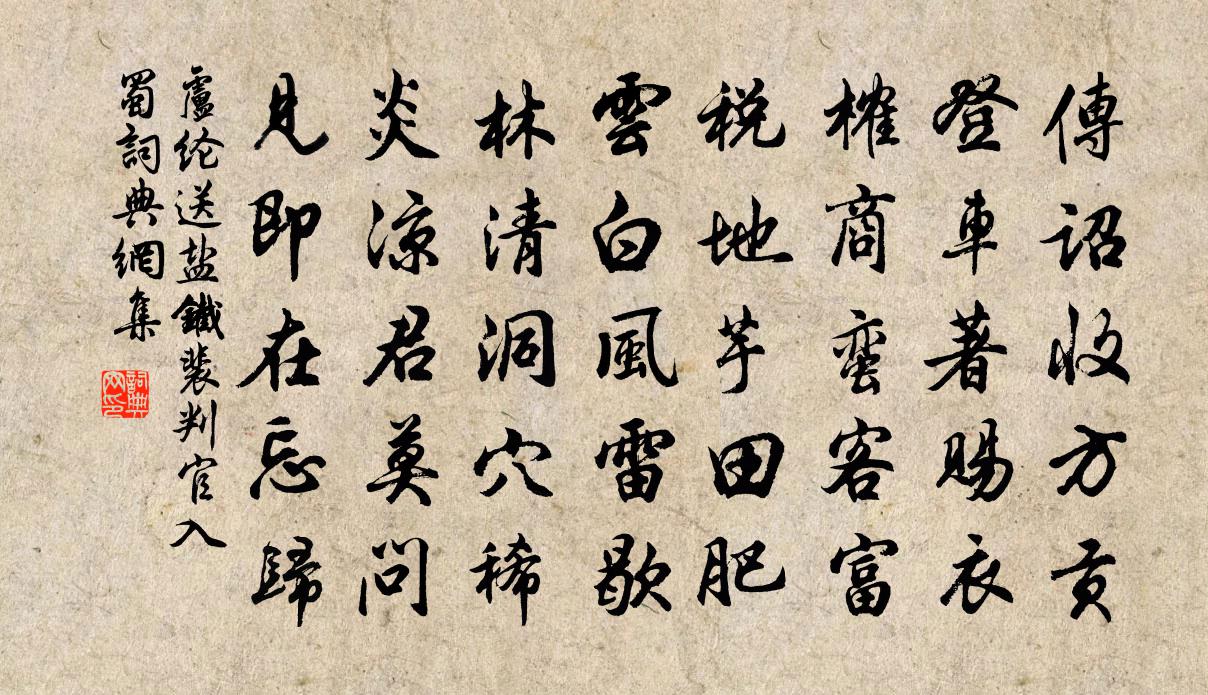 傳詔收方貢
登車著賜衣
榷商蠻客富
税地芋田肥
雲白風雷歇
林清洞穴稀
炎涼君莫問
見即在忘歸
盧纶送盐鐵裴判官入
蜀詞典網集
詞典
网印